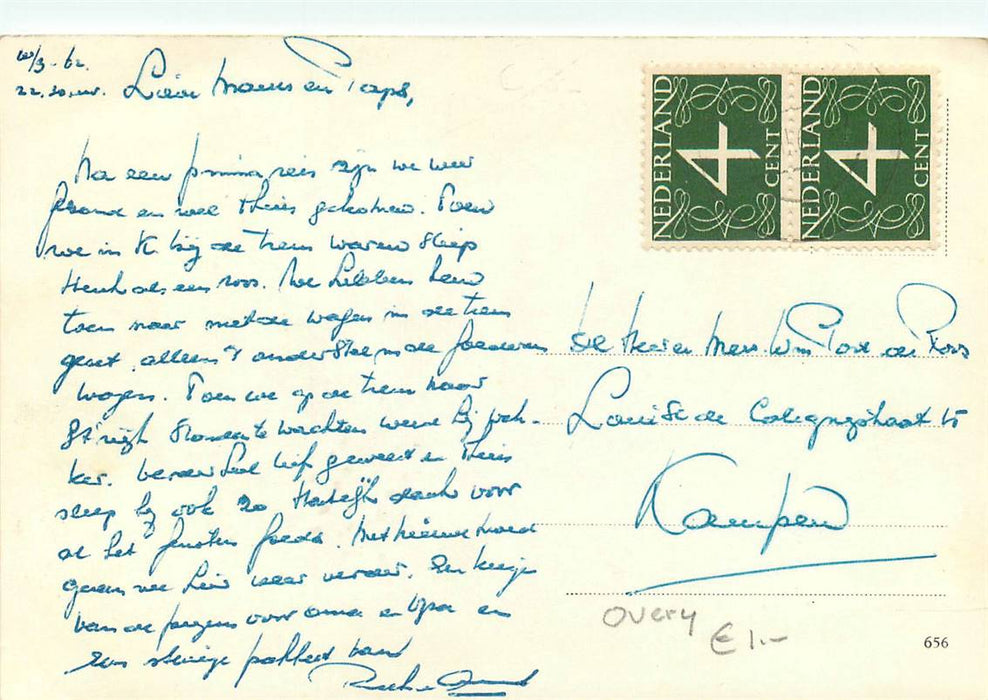 22.30 uur. Lieve Mams en Paps,
Na een prima reis zijn we weer
gezond en wel thuis gekomen. Toen
we in K bij de trein waren sliep
Henk als een roos. We hebben hem
toen maar met de wagen in de trein
gezet, alleen 't onderstel in de goederen
wagen. Toen we op de trein naar
stonden te wachten werd hij wak-
ker. Verder heel lief geweest en thuis
sliep hij ook zo. Hartelijk dank voor
al het goeds. Met nieuwe moed
gaan we hier weer verder. Een kusje
van de jongens voor oma en opa en
een stevige pakkerd van
NEDERLAND 4 CENT
NEDERLAND 4 CENT
de Heer en Mevr. Wm Post de Roos
Louise de Colignystraat 15
Kampen
Overy
€ 1.-
656